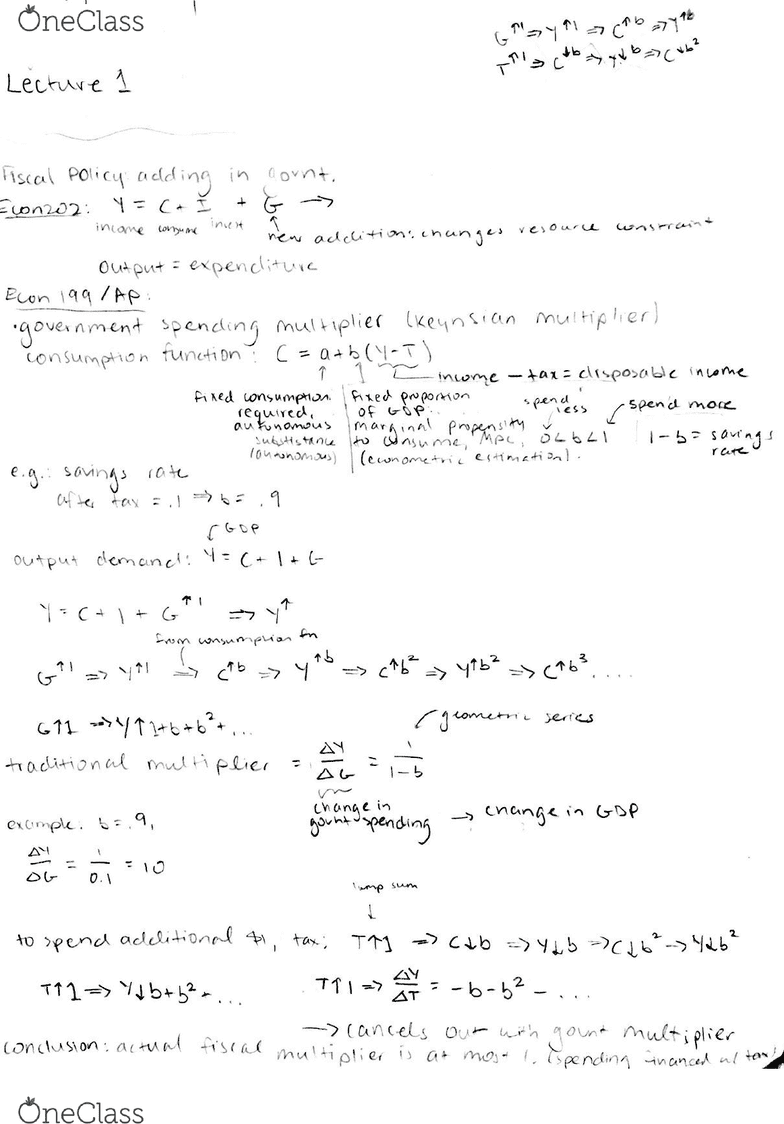 OneClass
G↑1 => Y↑1 => C↑b => Y↑b
T↑1 => C↓b => Y↓b => C↓b²
Lecture 1
Fiscal Policy: adding in govnt.
Econ202: Y = C + I + G →
income consume invest new addition: changes resource constraint
output = expenditure
Econ 199/AP:
•government spending multiplier (Keynsian multiplier)
consumption function: C = a+b(Y-T)
income - tax = disposable income
fixed consumption
required,
autonomous
substistance
(autonomous)
fixed proportion
of GDP.
marginal propensity
to consume, MPC, 0<b<1
(econometric estimation).
spend less
spend more
1-b = savings
rate
e.g.: savings rate
after tax = .1 => b = .9
GDP
output demand: Y = C + I + G
Y = C + I + G↑1 => Y↑
from consumption fn
G↑1 => Y↑1 => C↑b => Y↑b => C↑b² => Y↑b² => C↑b³ ....
G↑1 => Y↑1+b+b²+...
geometric series
traditional multiplier = ΔY/ΔG = 1/1-b
change in
govnt spending → change in GDP
example: b = .9,
ΔY/ΔG = 1/0.1 = 10
lump sum
to spend additional $1, tax: T↑1 => C↓b => Y↓b => C↓b² → Y↓b²
T↑1 => Y↓b+b²+... T↑1 => ΔY/ΔT = -b-b²-...
→ cancels out with govnt multiplier
conclusion: actual fiscal multiplier is at most 1. (spending financed w/ tax)
OneClass